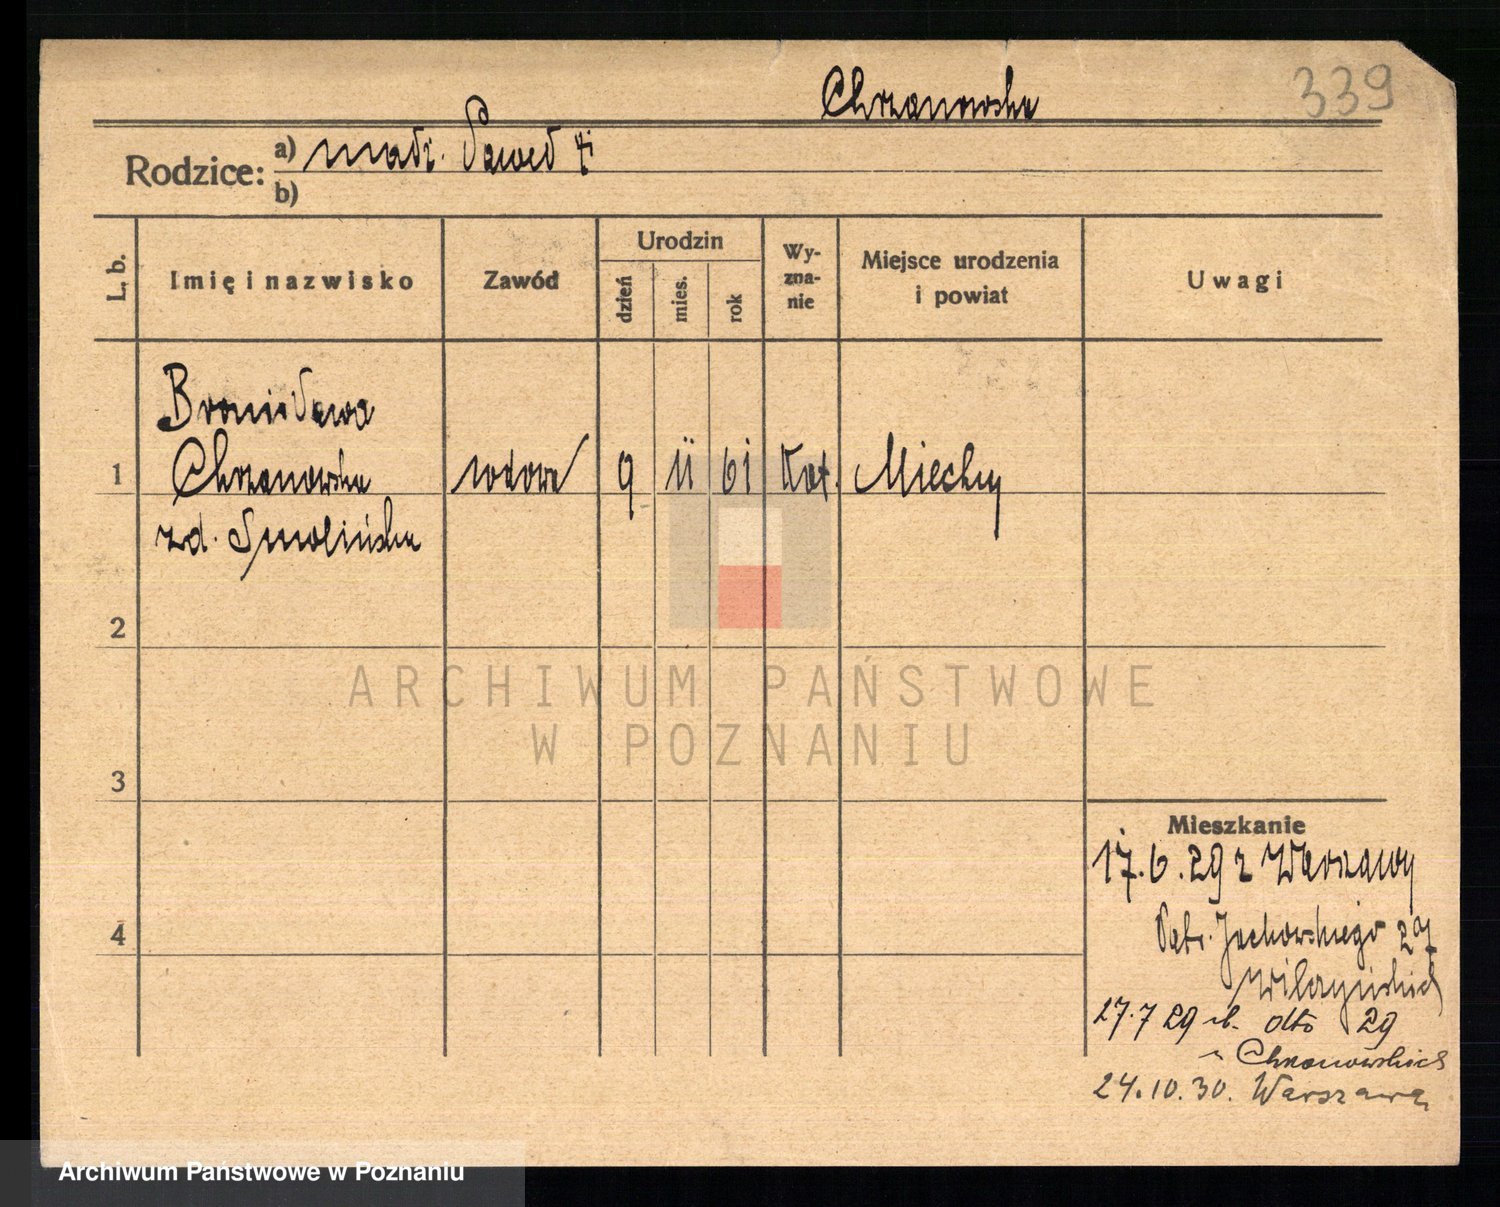 Chrzanowska
339
Rodzice: a) małż. Paweł †
b)
L. b.
Imię i nazwisko
Zawód
Urodzin
dzień
mies.
rok
Wy-
zna-
nie
Miejsce urodzenia
i powiat
Uwagi
Bronisława
1 Chrzanowska wdowa 9 11 61 kat. Miechy
zd. Smolińska
2
3
4
Mieszkanie
17.6.29 z Warszawy
Jackowskiego 29
27.7 29 dtto 29
Chrzanowskich
24.10.30. Warszawa
ARCHIWUM PAŃSTWOWE
W POZNANIU
Archiwum Państwowe w Poznaniu